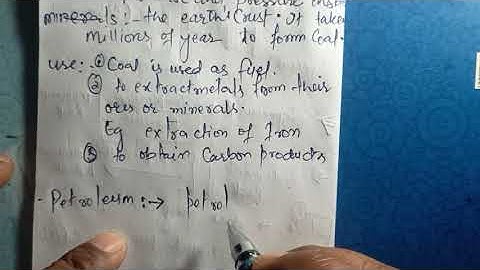 pressure
minerals :- the earth's Crust. It takes
millions of year to form Coal.
use:- ① Coal is used as fuel.
② to extract metals form their
ores or minerals.
Eg extraction of Iron
③ to obtain Carbon products
- Petroleum :→ petrol